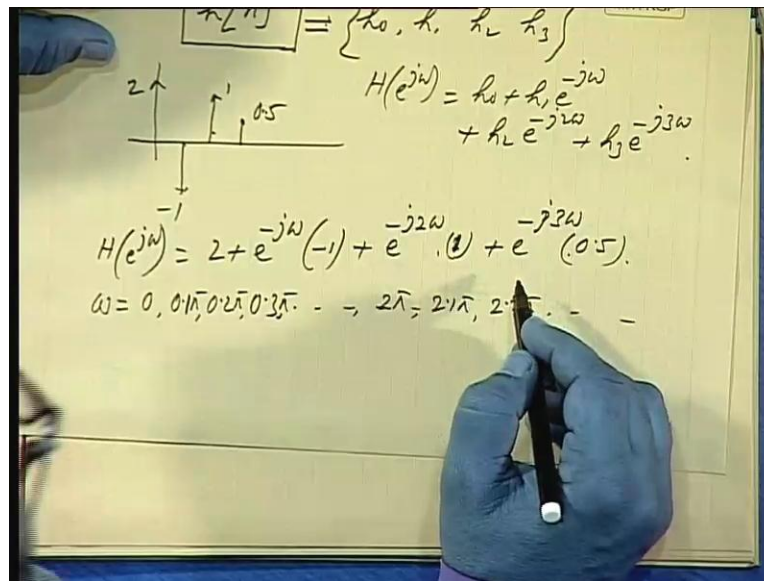 h[n] ⇒ {h0, h1 h2 h3}
H(e^jω) = h0 + h1 e^-jω
+ h2 e^-j2ω + h3 e^-j3ω.
2
1
0.5
-1
H(e^jω) = 2 + e^-jω (-1) + e^-j2ω .(1) + e^-j3ω (0.5).
ω = 0, 0.1π, 0.2π, 0.3π. - -, 2π, 2.1π, 2. π. - -